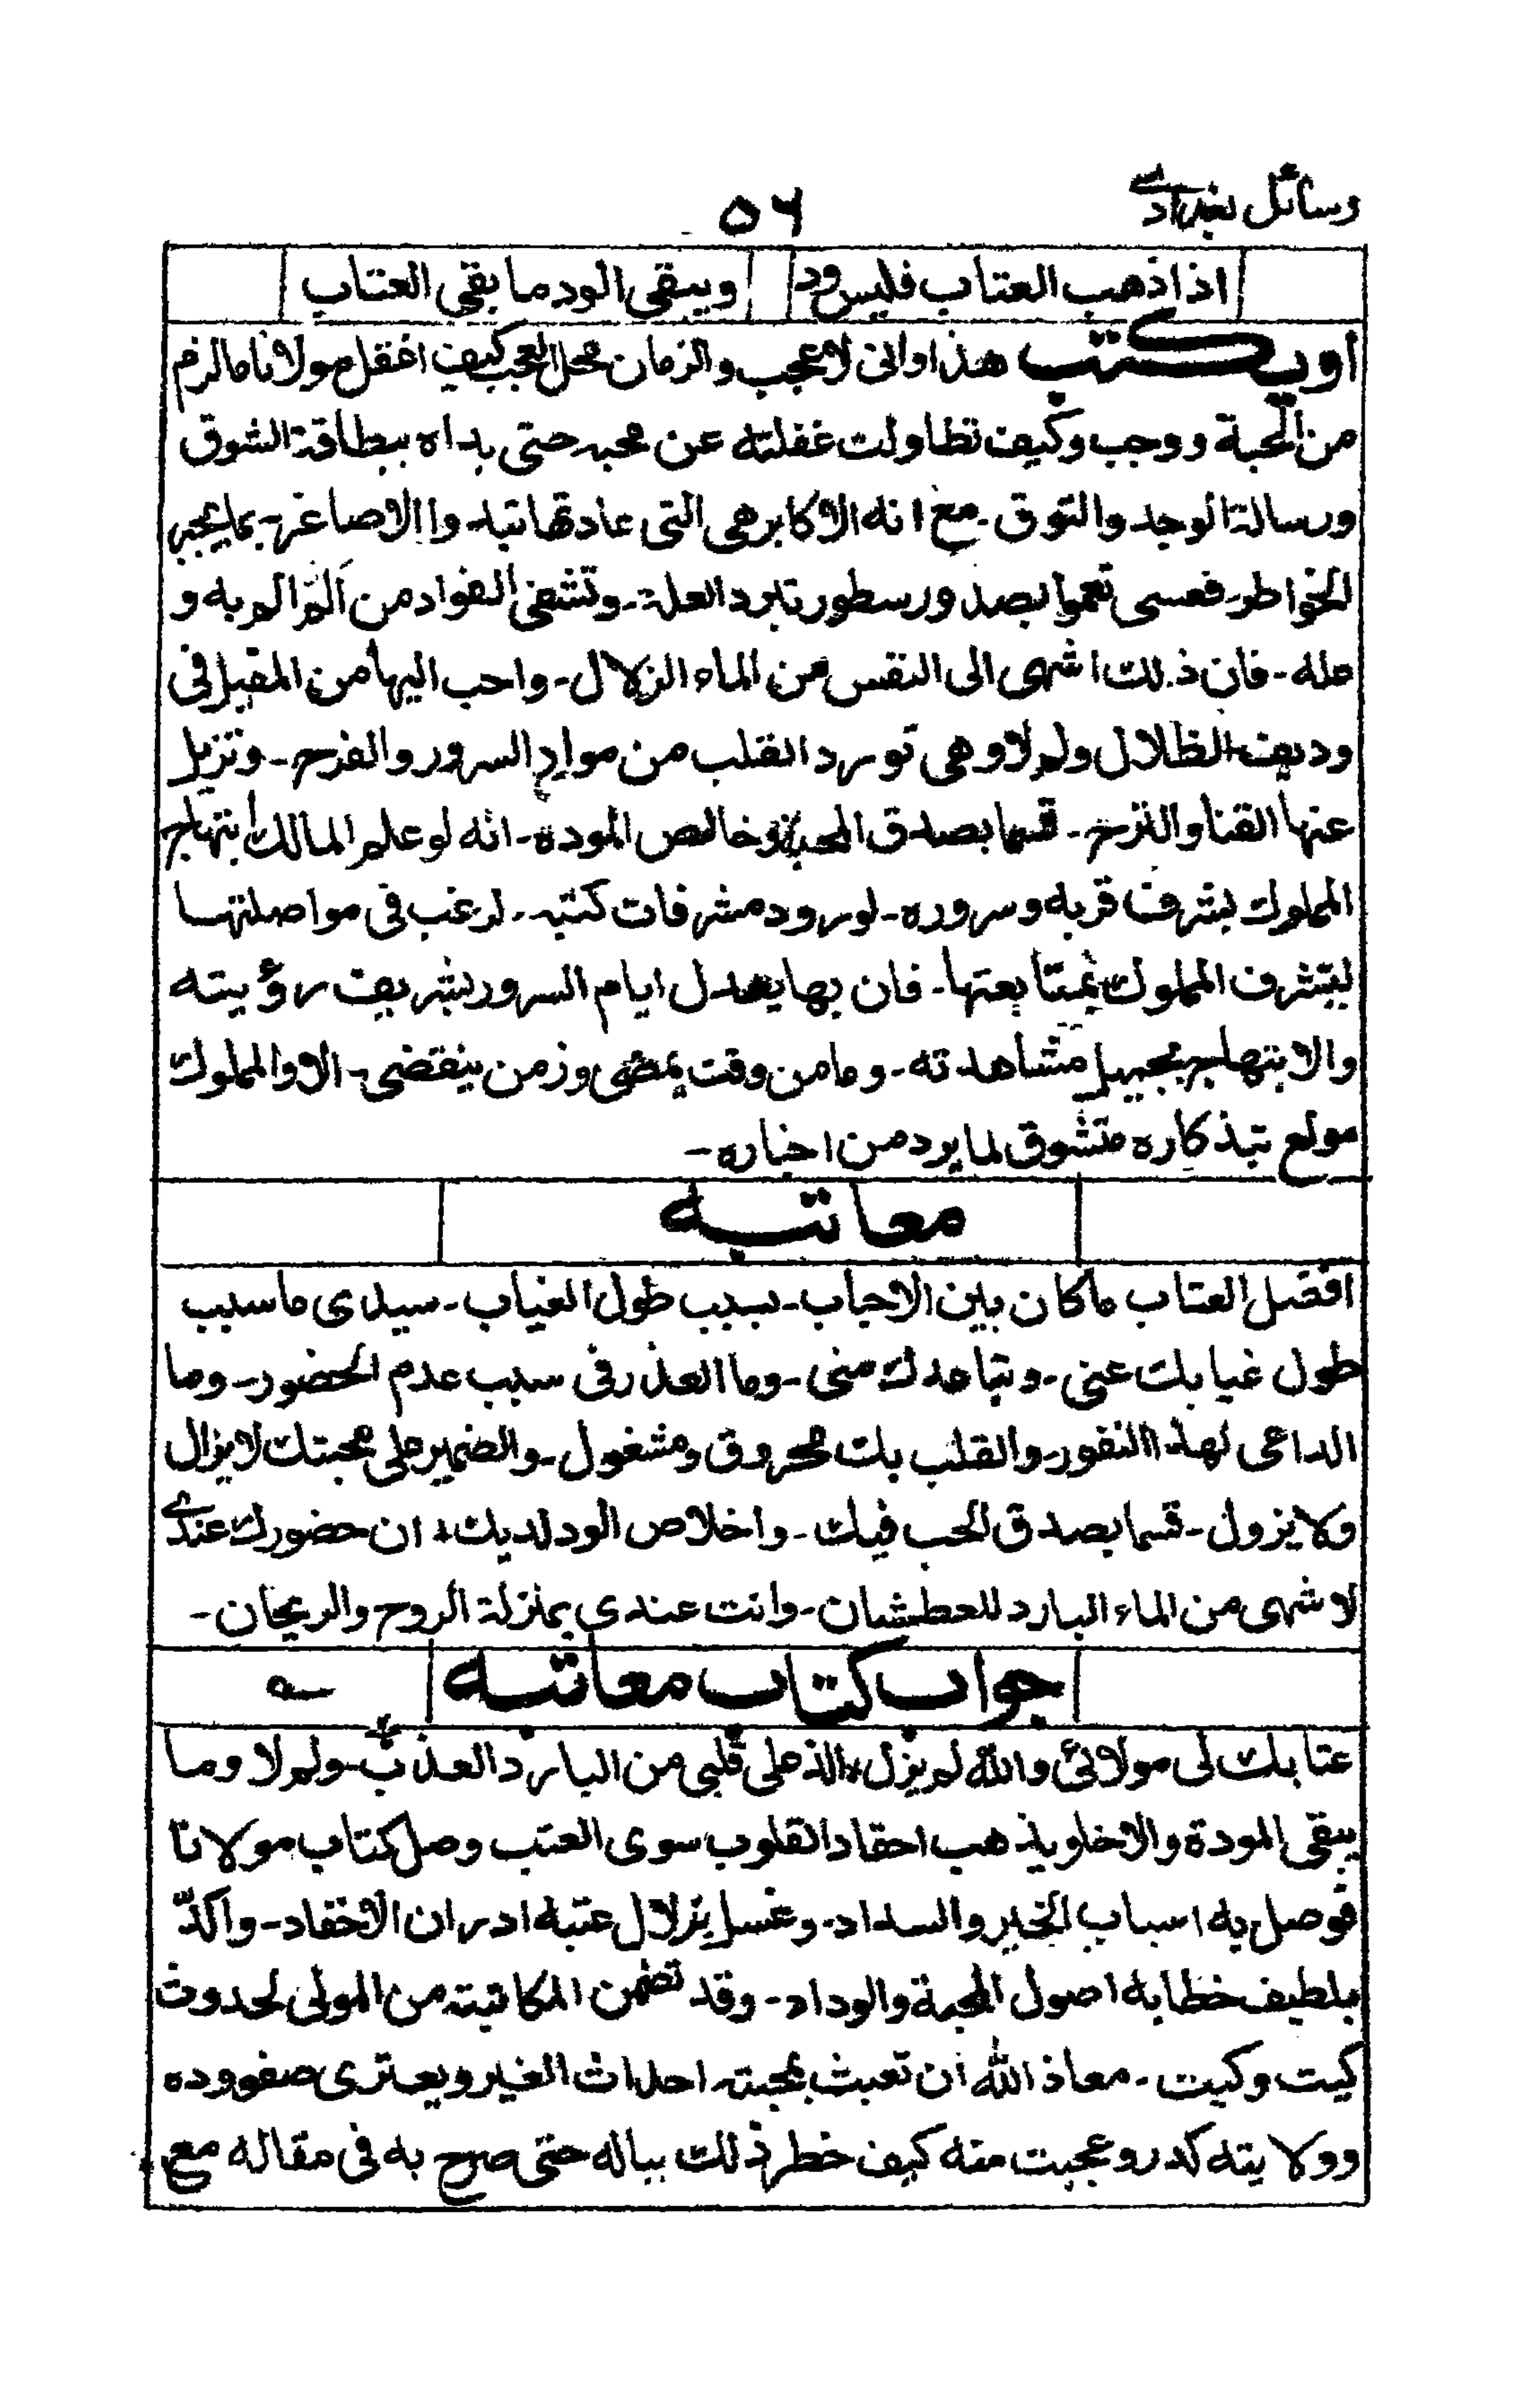 رسائل بغدادی
٥٦
اذا ذهب العتاب فليس ود ويبقى الود ما بقى العتاب
او يكتب هذا وانى لاعجب والزمان محل العجب كيف اغفل مولانا ما لزم
من المحبة ووجب وكيف تطاولت غفلته عن محبه حتى بداه ببطاقة الشوق
ورسالة الوجد والتوق - مع انه الاكابر هى التى عادتها تبد وا الاصاغر - بما يجبر
الخواطر - فعسى تعموا بصدور سطور تبرد العلة - وتشفى الفواد من الم الم به و
مله - فان ذلك اشهى الى النفس من الماء الزلال - واحب اليها من المقيل فى
وديف الظلال ولم لا وهى تورد القلب من موارد السرور والفرح - وتزيل
عنها القنا والترح - قسما بصدق المحبة وخالص المودة - انه لو علم المالك ابتهاج
المملوك بشرف قربه وسروره - لورود مشرفات كتبه - لرغب فى مواصلتها
ليتشرف المملوك بمتابعتها - فان بها يعدل ايام السرور بشريف رؤيته
والابتهاج بجميل مشاهدته - وما من وقت يمضى وزمن ينقضى - الا والمملوك
مولع بتذكاره متشوق لما يرد من اخباره -
معاتبه
افضل العتاب ما كان بين الاحباب - بسبب طول الغياب - سيدى ما سبب
طول غيابك عنى - وتباعدك منى - وما العذر فى سبب عدم الحضور - وما
الداعى لهذا النفور - والقلب بك محروق ومشغول - والضمير على محبتك لا يزال
ولا يزول - قسما بصدق الحب فيك - واخلاص الود لديك، ان حضورك عندى
لاشهى من الماء البارد للعطشان - وانت عندى بمنزلة الروح والريحان -
جواب كتاب معاتبه
عتابك لى مولائ والله لم يزل، الذ على قلبى من البارد العذب - ولم لا وما
يبقى المودة والاخا ويذهب احقاد القلوب سوى العتب وصل كتاب مولانا
فوصل به اسباب الخير والسداد - وغسل بزلال عتبه ادران الاحقاد - واكدّ
بلطيف خطابه اصول المحبة والوداد - وقد تضمن المكاتبته من المولى لحدوث
كيت وكيت - معاذ الله ان تعبث بمحبته احداث الغير ويعترى صفو وده
وولايته كدر وعجبت منه كيف خطر ذلك بباله حتى صرح به فى مقاله مع